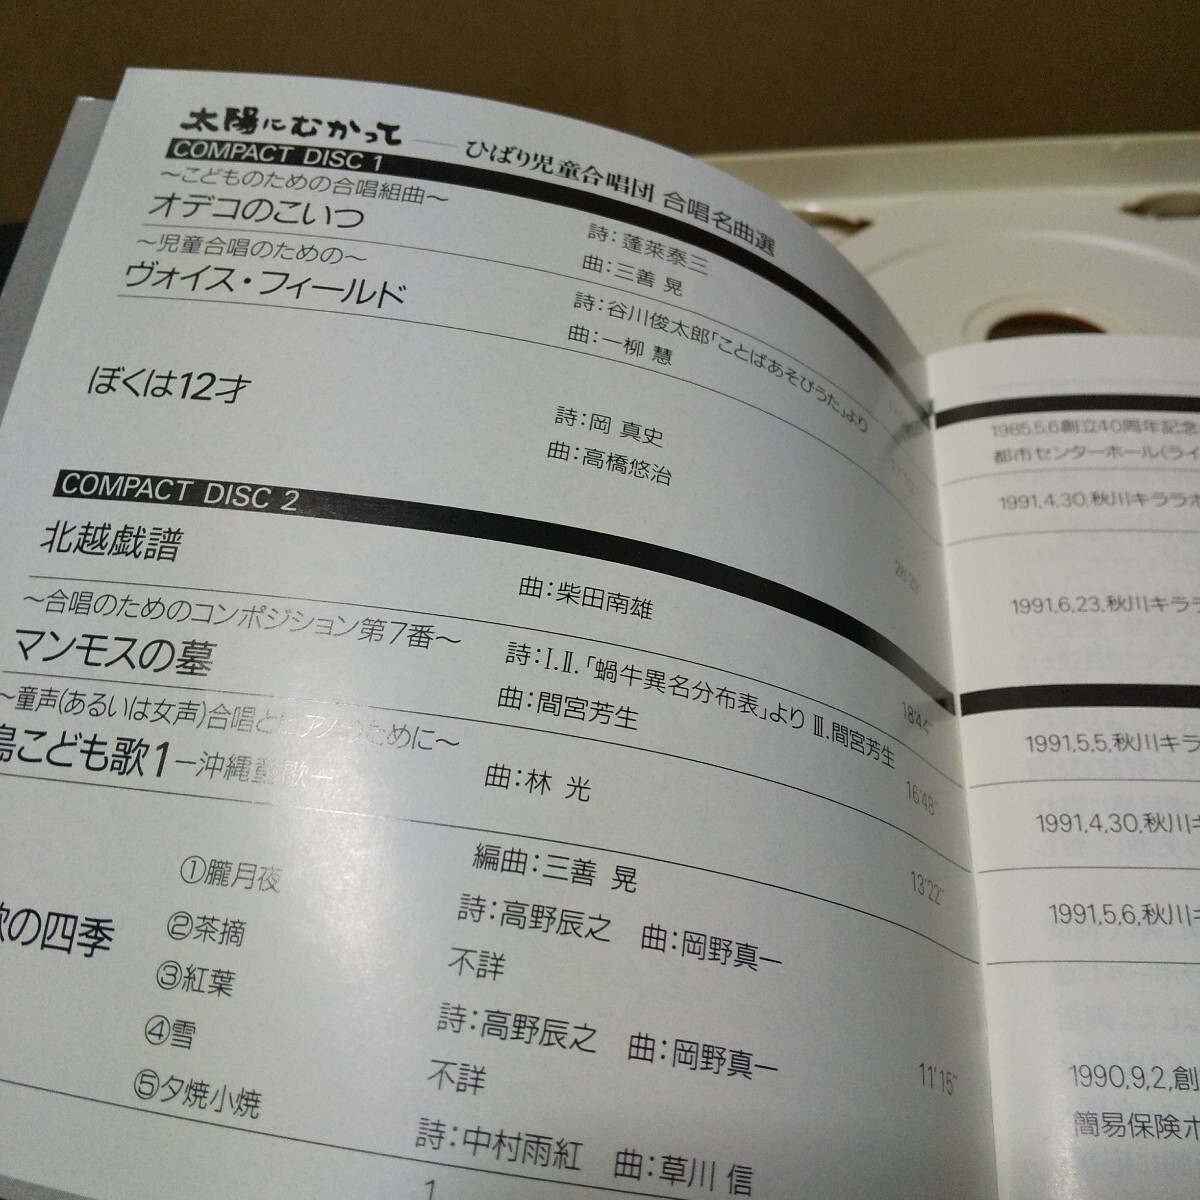 太陽にむかって ── ひばり児童合唱団 合唱名曲選
COMPACT DISC 1
～こどものための合唱組曲～
オデコのこいつ
詩：蓬萊泰三
曲：三善 晃
～児童合唱のための～
ヴォイス・フィールド
詩：谷川俊太郎「ことばあそびうた」より
曲：一柳 慧
ぼくは12才
詩：岡 真史
曲：高橋悠治
COMPACT DISC 2
北越戯譜
曲：柴田南雄
18'44"
～合唱のためのコンポジション第7番～
マンモスの墓
詩：I.II.「蝸牛異名分布表」より III.間宮芳生
曲：間宮芳生
16'48"
～童声(あるいは女声)合唱とピアノのために～
島こども歌1－沖縄童歌－
曲：林 光
13'22"
編曲：三善 晃
歌の四季
①朧月夜
詩：高野辰之 曲：岡野真一
②茶摘
不詳
③紅葉
詩：高野辰之 曲：岡野真一
④雪
不詳
⑤夕焼小焼
詩：中村雨紅 曲：草川 信
11'15"
1
1985.5.6創立40周年記念
都市センターホール(ライ
1991.4.30.秋川キララホ
1991.6.23.秋川キララ
1991.5.5.秋川キラ
1991.4.30.秋川キ
1991.5.6.秋川キ
1990.9.2.創
簡易保険ホ